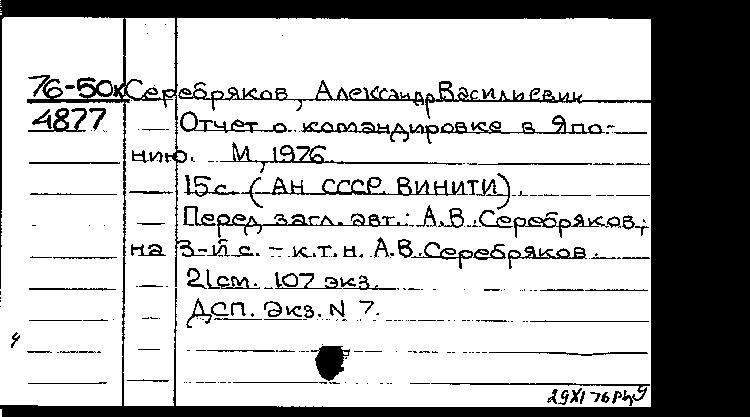 76-50к Серебряков, Александр Василиевич
4877 Отчет о командировке в Япо-
нию. М., 1976.
15 с. (АН СССР. ВИНИТИ).
Перед загл. авт.: А.В.Серебряков;
на 3-й с. - к.т.н. А.В.Серебряков.
21 см. 107 экз.
ДСП. Экз. N 7.
29 XI 76